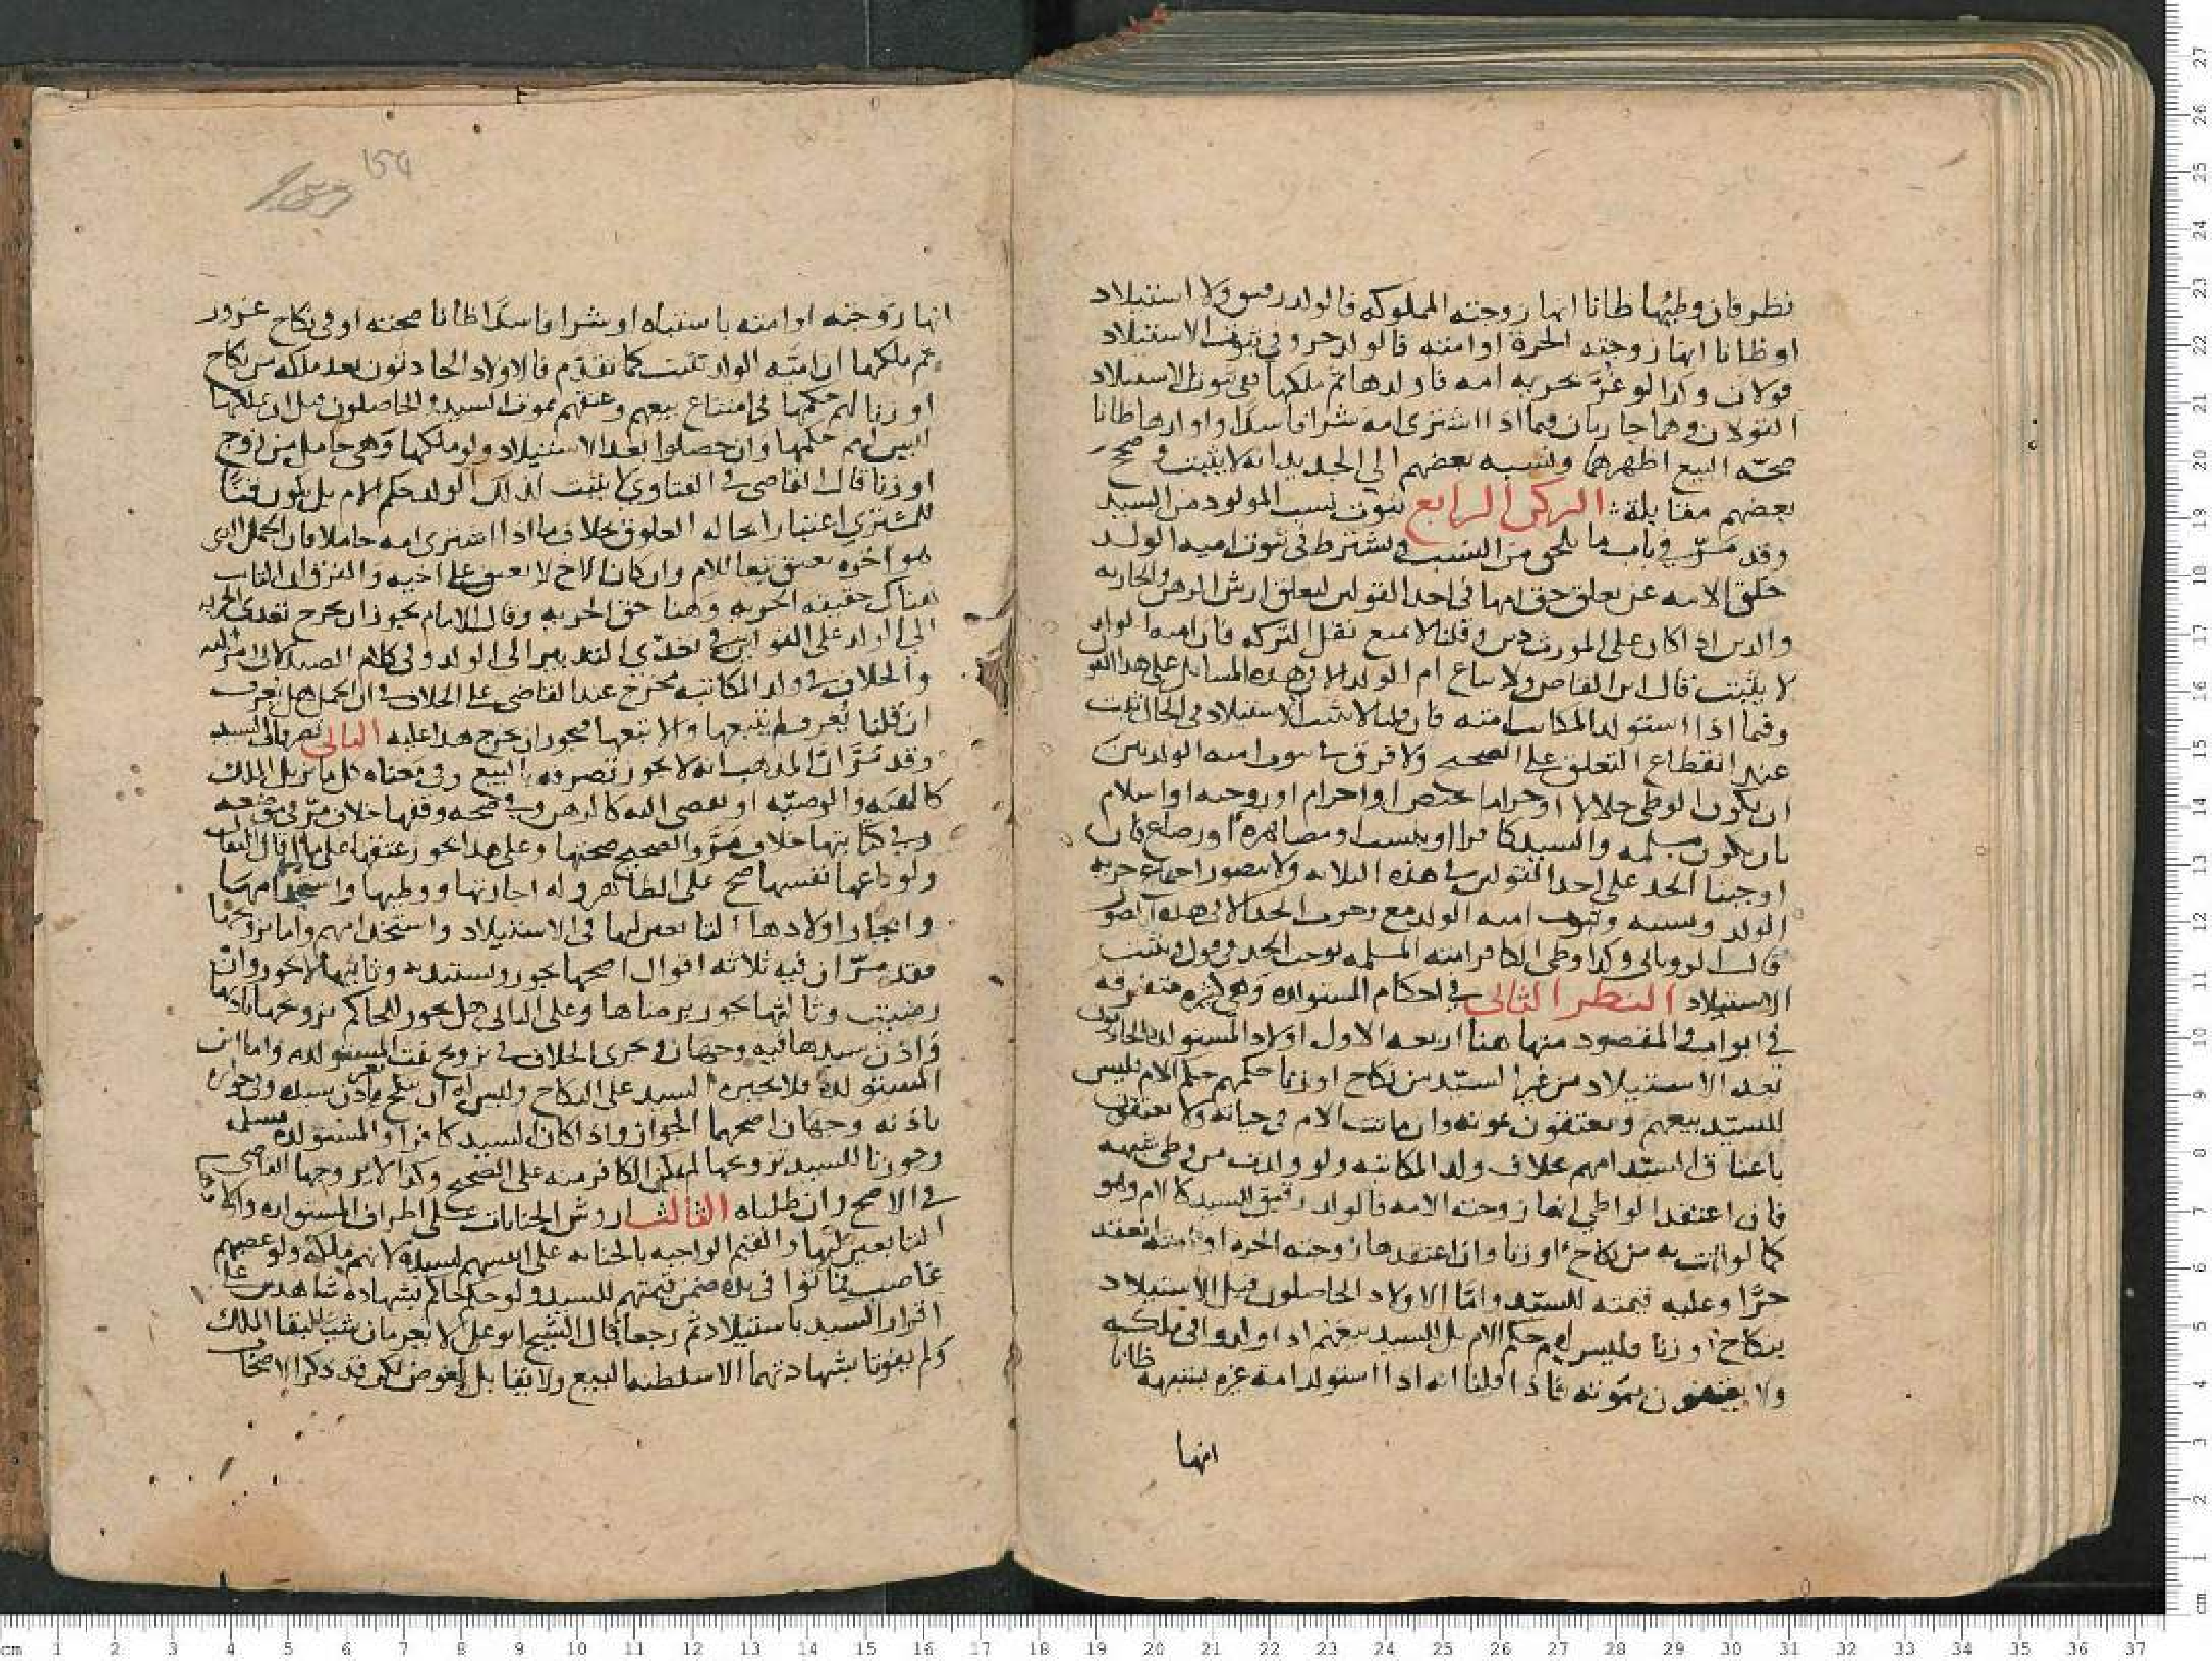 نظر فان وطئها ظانا انها زوجته المملوكة فالولد رقيق ولا استيلاد
او ظانا انها زوجته الحرة او امته فالولد حر وفي ثبوت الاستيلاد
قولان ولو غر بحرية امه فاولدها ثم ملكها ففي ثبوت الاستيلاد
القولان وهما جاريان فيما اذا اشترى امه شرا فاسدا واولدها ظانا
صحة البيع اظهرهما ونسبه بعضهم الى الجديد انه لا يثبت وصحح
بعضهم مقابله الركن الرابع ثبوت نسب المولود من السيد
وقد مر في باب ما يلحق من النسب ويشترط في ثبوت امية الولد
خلو الامه عن تعلق حق بها في احد القولين ليتعلق ارش الرهن والجاريه
والدين اذا كان على المورث دين وقلنا لا يمنع نقل التركه فان امية الولد
لا يثبت قال ابن القاص ولا تباع ام الولد الا في هذه المسايل على هذا القول
وفيما اذا استولد المكاتب امته فان قلنا لا يثبت الاستيلاد في الحال ثبت
عند انقطاع التعلق على الصحيح ولا فرق في ثبوت امية الولد بين
ان يكون الوطى حلالا او حراما بحيض او احرام او زوجيه او اسلام
بان يكون مسلمه والسيد كافرا او بنسب او مصاهرة او رضاع فان
اوجبنا الحد على احد القولين في هذه الثلاثه ولا يتصور اجتماع حرية
الولد ونسبه وثبوت امية الولد مع وجوب الحد الا في هذه الصور
قال الروياني وكذا وطى الكافر امته المسلمه يوجب الحد في قول ويثبت
الاستيلاد النظر الثاني في احكام المستولده وهي كثيره متفرقه
في ابواب والمقصود منها هنا اربعه الاول اولاد المستولده الحادثون
بعد الاستيلاد من غير السيد من نكاح او زنا حكمهم حكم الام فليس
للسيد بيعهم ويعتقون بموته وان ماتت الام في حياته ولا يعتقون
باعتاق السيد امهم بخلاف ولد المكاتبه ولو ولدت من وطى شبهه
فان اعتقد الواطي انها زوجته الامه فالولد رقيق للسيد كالام وهو
كما لو اتت به من نكاح او زنا وان اعتقدها زوجته الحره او امته انعقد
حرا وعليه قيمته للسيد واما الاولاد الحاصلون قبل الاستيلاد
بنكاح او زنا فليس لهم حكم الام بل للسيد بيعهم اذا ولدوا في ملكه
ولا يعتقون بموته فاذا قلنا انه اذا استولد امة غيره بشبهه ظانا
انها
154
انها زوجته او امته باشتباه او بشرا فاسد ظانا صحته او في نكاح غرور
ثم ملكها ان امية الولد تثبت كما تقدم فالاولاد الحادثون بعد ملكه من نكاح
او زنا لهم حكمها في امتناع بيعهم وعتقهم بموت السيد والحاصلون قبل ان يملكها
ليس لهم حكمها وان حصلوا بعد الاستيلاد ولو ملكها وهي حامل من زوج
او زنا قال القاضي في الفتاوي لا يثبت لذلك الولد حكم الام بل يكون قنا
للمشتري اعتبارا بحالة العلوق بخلاف ما اذا اشترى امه حاملا فان الحمل الذي
هو اخوه يعتق تبعا للام وان كان الاخ لا يعتق على اخيه والفرق ان الثابت
هناك حقيقة الحريه وهنا حق الحريه وقال الامام يجوز ان يخرج تعدى الحريه
الى الولد على القولين في تعدي التدبير الى الولد وفي كلام الصيدلاني
والخلاف في ولد المكاتبه مخرج عند القاضي على الخلاف في ان الحمل هل يعرف
ان قلنا يعرف لم يتبعها والا تبعها فيجوز ان يخرج هذا عليه الثاني تصرفات السيد
وقد مر ان المذهب انه لا يجوز تصرفه بالبيع وفي معناه كل ما يزيل الملك
كالهبه والوصيه او يفضي اليه كالرهن وفي صحه وقفها خلاف مر في موضعه
وفي كتابتها خلاف مر والصحيح صحتها وعلى هذا يجوز عتقها على مال قال القفال
ولو باعها نفسها صح على الظاهر وله اجارتها ووطيها واستخدامها
وايجار اولادها التابعين لها في الاستيلاد واستخدامهم واما تزويجها
فقد مر ان فيه ثلاثه اقوال اصحها يجوز ويستبد به وثانيها لا يجوز وان
رضيت وثالثها يجوز برضاها وعلى الثاني هل يجوز للحاكم تزويجها باذنها
واذن سيدها فيه وجهان وجرى الخلاف في تزويج بنت المستولده واما ابن
المستولده فلا يجبره السيد على النكاح وليس له ان ينكح بغير اذن سيده وفي جوازه
باذنه وجهان اصحهما الجواز واذا كان السيد كافرا والمستولده مسلمه
وجوزنا للسيد تزويجها لم يمكن الكافر منه على الصحيح وكذا لا يزوجها القاضي
في الاصح وان طلباه الثالث اروش الجنايات على اطراف المستولده واولادها
التابعين لها والقيم الواجبه بالجنايه على انفسهم لسيدها لانهم ملكه ولو غصبهم
غاصب فماتوا في يده ضمن قيمتهم للسيد ولو حكم حاكم بشهادة شاهدين على
اقرار السيد باستيلاد ثم رجعا قال الشيخ ابو علي لا يغرمان شيا لبقا الملك
ولم يفوتا بشهادتهما الا سلطنة البيع ولا يقابل بعوض لكن قد ذكر الاصحاب